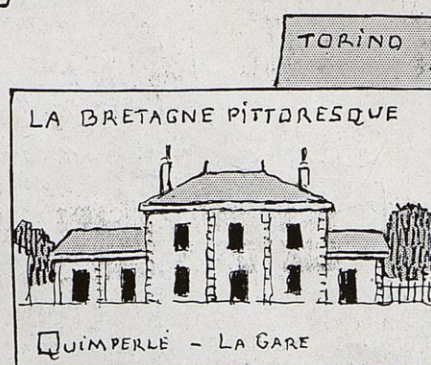 TORINO
LA BRETAGNE PITTORESQUE
QUIMPERLÉ - LA GARE